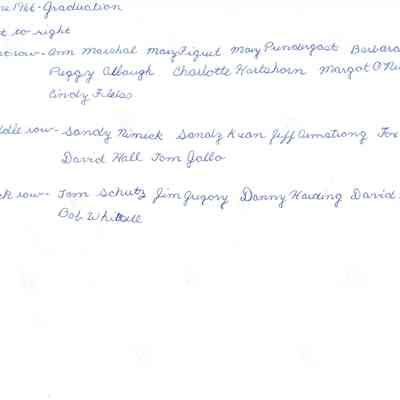 1966-Graduation
to right
row- Ann Marshal Mary Figuet Mary Prendergast Barbara
Peggy Albaugh Charlotte Hartshorn Margot O'Ne
Cindy
ddle row- Sandy Nimick Sandy Kuan Jeff Armstrong
David Hall Tom Gallo
ck row- Tom Schutz Jim Gregory Danny Harding David
Bob Whittell